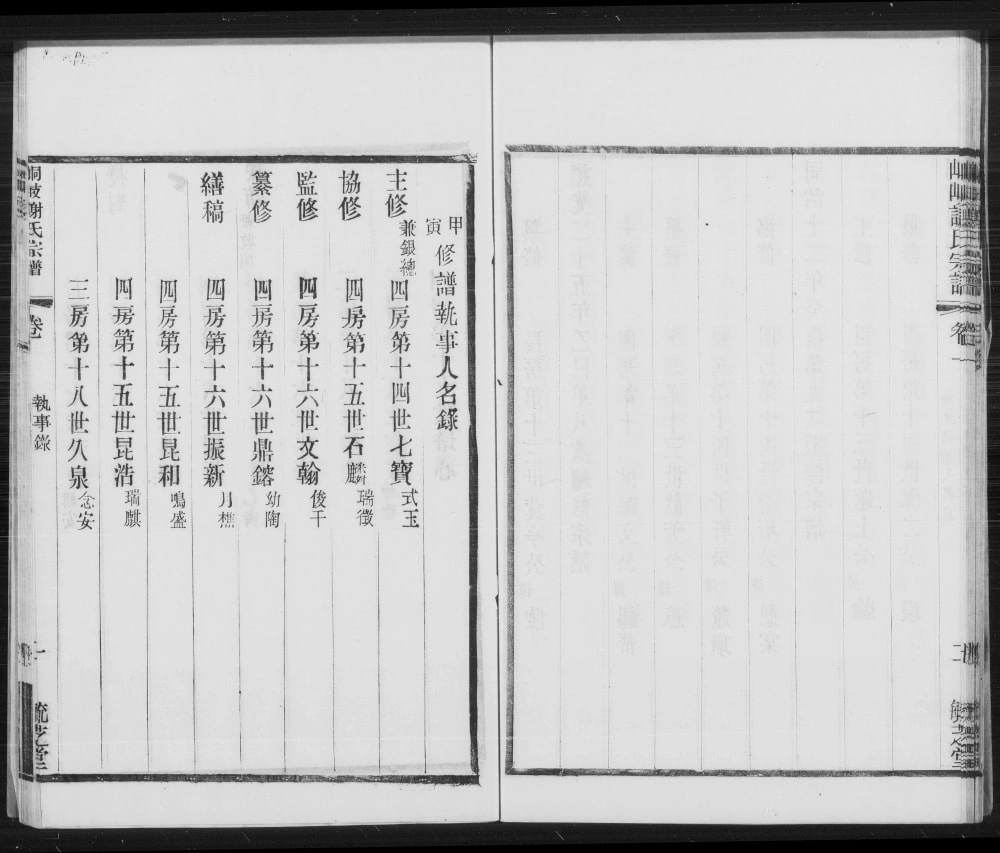 宗譜
卷一
二
甲寅修譜執事人名錄
主修兼銀總 四房第十四世七寶式玉
協修 四房第十五世石麟瑞徵
監修 四房第十六世文翰俊千
纂修 四房第十六世鼎鎔幼陶
繕稿 四房第十六世振新月樵
四房第十五世昆和鳴盛
四房第十五世昆浩瑞麒
三房第十八世久泉念安
謝氏宗譜
卷
執事錄
一